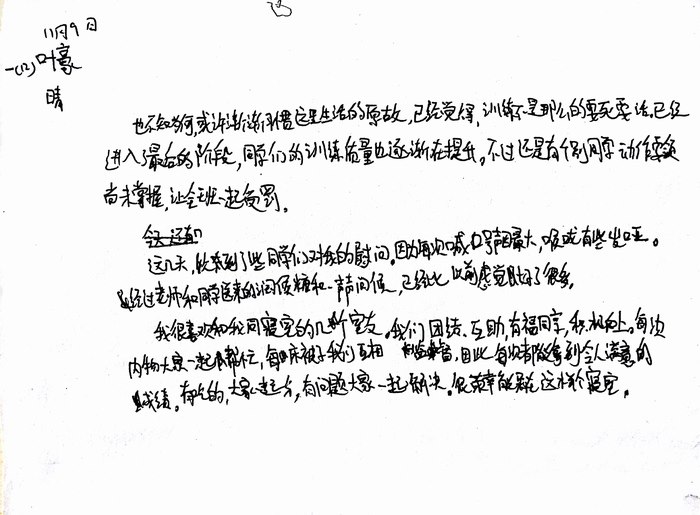 11月9日
一(12)叶豪
晴
也不知为何,或许渐渐习惯这里生活的原故,已经觉得,训练不是那么的要死要活.已经
进入了最后的阶段,同学们的训练质量也逐渐在提升。不过还是有个别同学动作要领
尚未掌握,让全班一起受罚。
今天还有
这几天,收到了些同学们对我的慰问。因为每次喊口号声音最大,喉咙有些发哑。
经过老师和同学送来的润喉糖和一声声问候,已经比以前感觉好了很多。
我很喜欢和我同寝室的几个室友。我们团结、互助,有福同享,积极向上。每次
内务大家一起帮忙,每床被子我们互相,因此每次都能拿到令人满意的
成绩。有吃的,大家一起分,有问题大家一起解决。很荣幸能在这样个寝室。